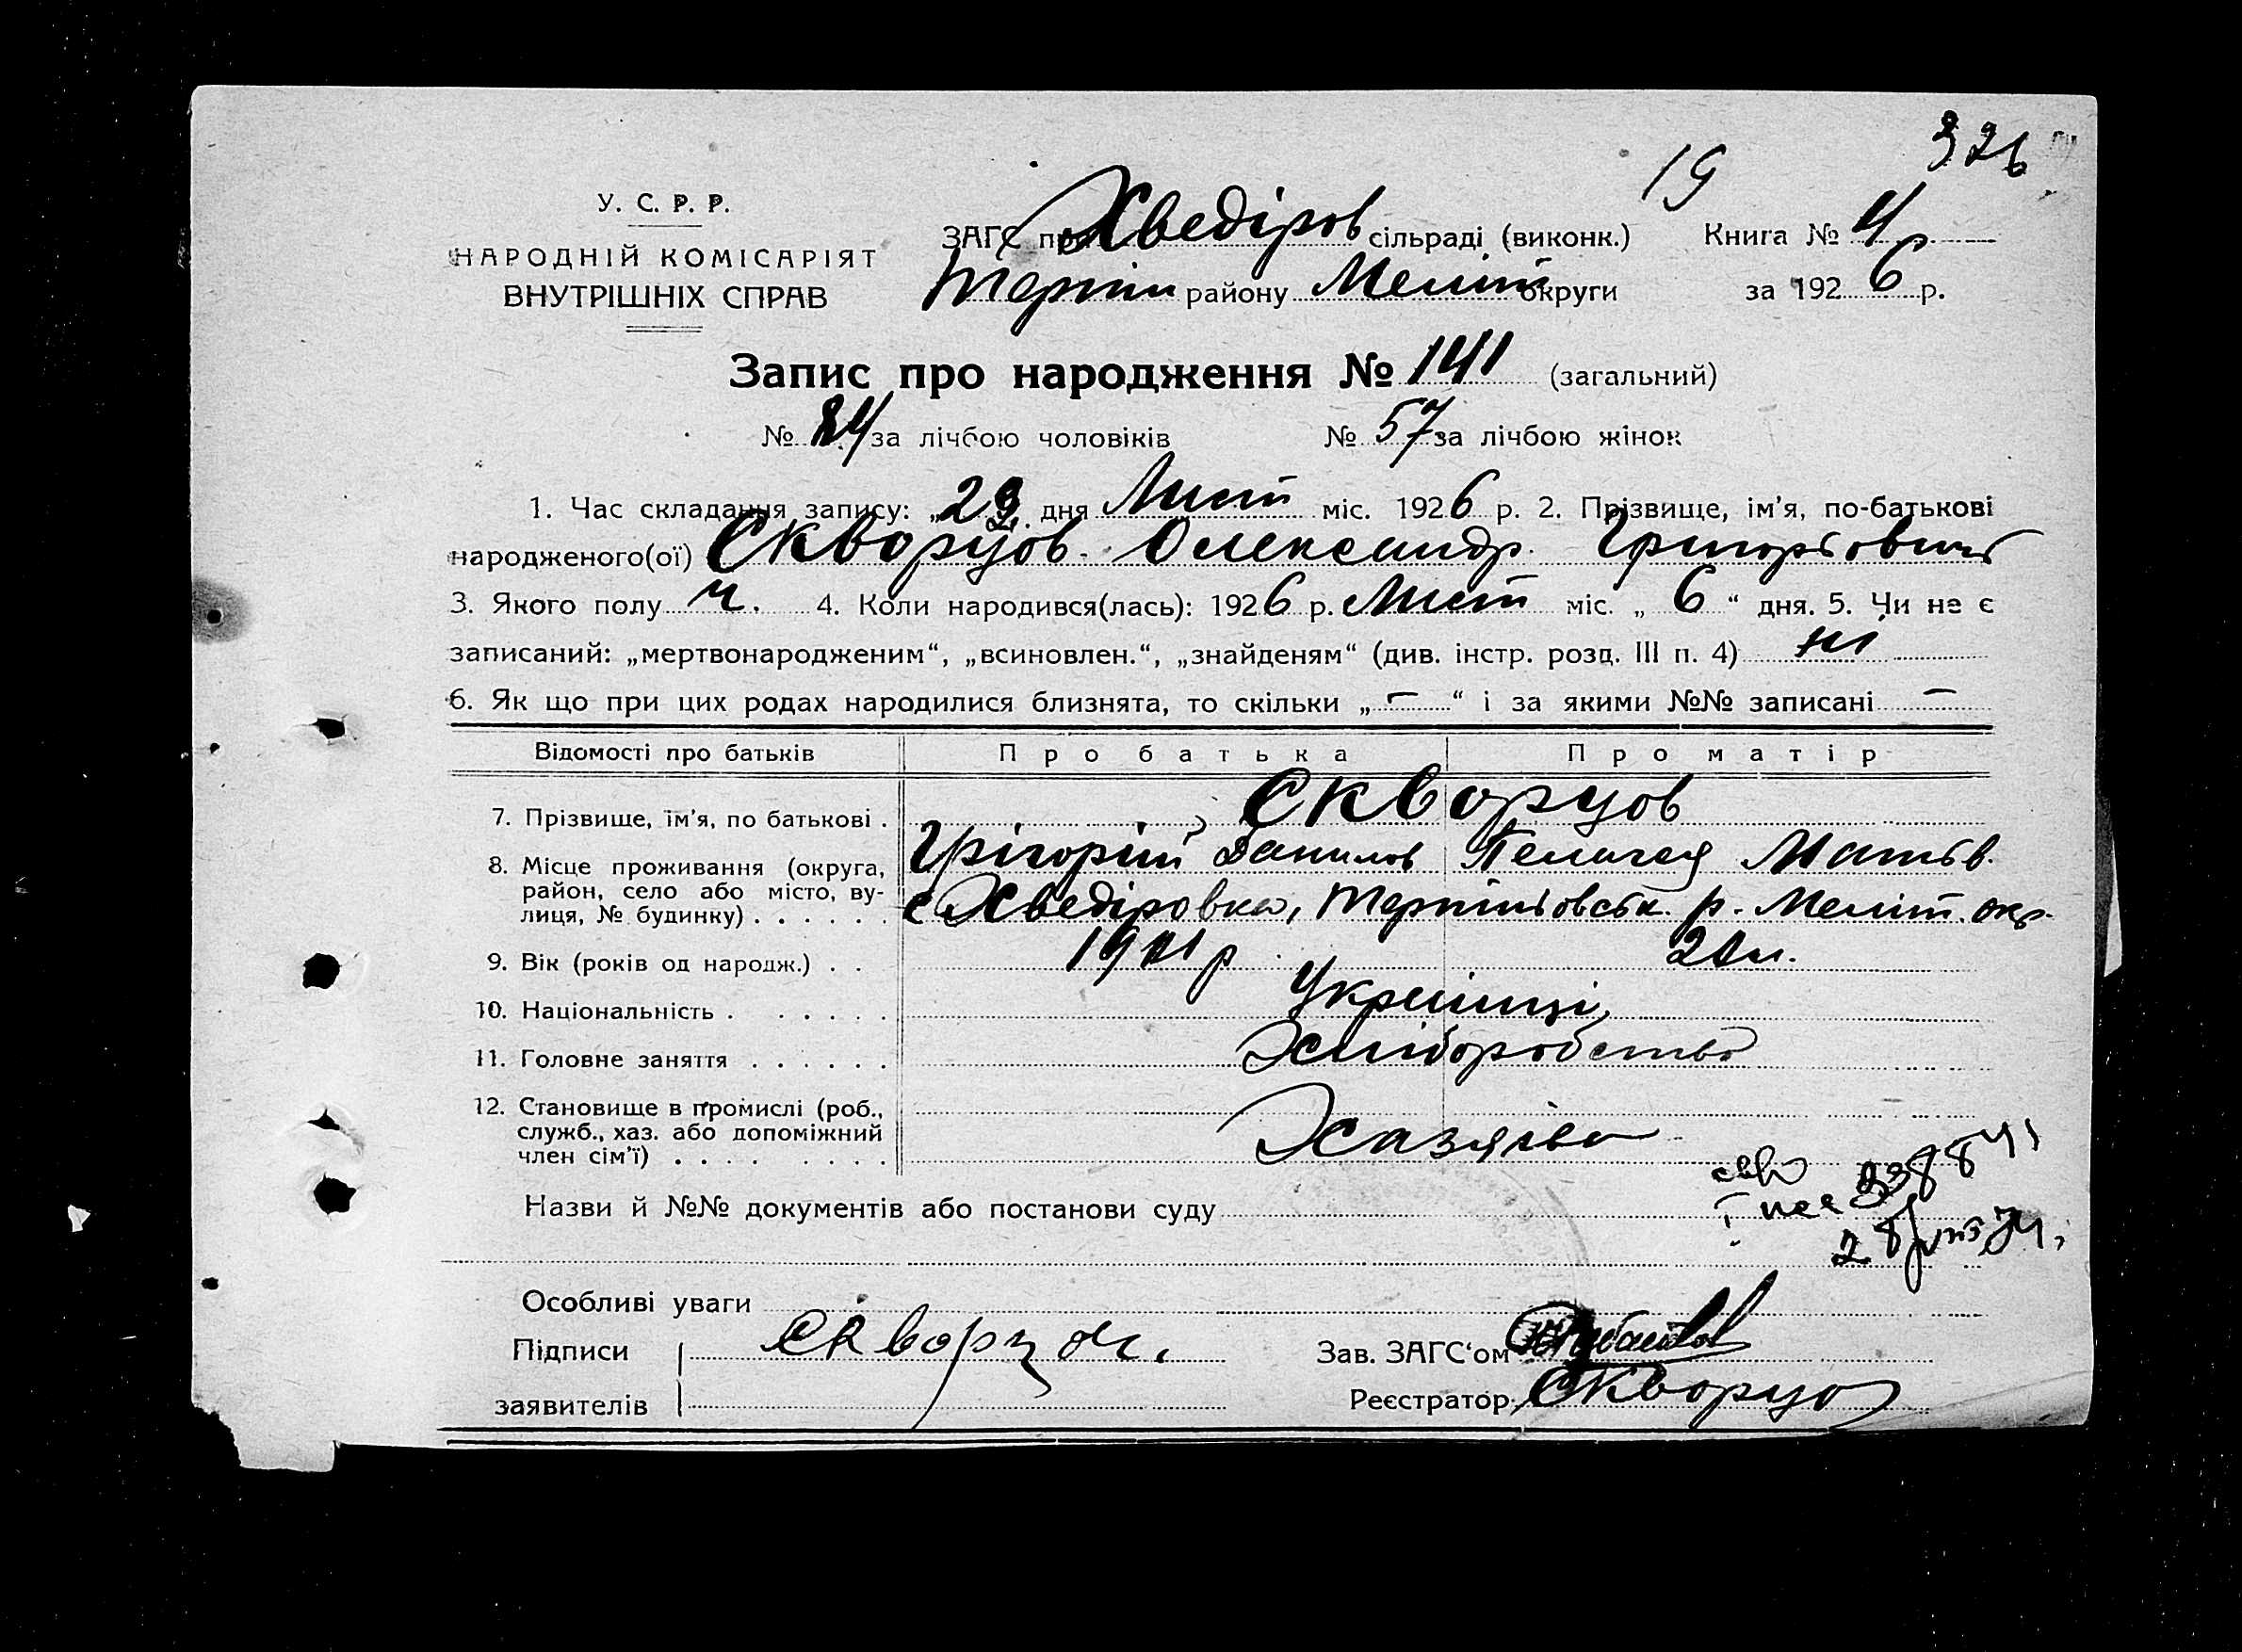 326
19
У. С. Р. Р.
НАРОДНІЙ КОМІСАРІЯТ
ВНУТРІШНІХ СПРАВ
ЗАГС при Хведіров сільраді (виконк.) Книга № 4
Терпін району Меліт округи за 1926 р.
Запис про народження № 141 (загальний)
№ 84 за лічбою чоловіків № 57 за лічбою жінок
1. Час складання запису: „ дня Лист міс. 1926 р. 2. Прізвище, ім'я, по-батькові
народженого(ої) Скворцов Олександр Григорьович
3. Якого полу ч. 4. Коли народився(лась): 1926 р. Лист міс. „ 6 “ дня. 5. Чи не є
записаний: „мертвонародженим“, „всиновлен.“, „знайденям“ (див. інстр. розд. III п. 4) ні
6. Як що при цих родах народилися близнята, то скільки „ — “ і за якими №№ записані —
Відомості про батьків Про батька Про матір
7. Прізвище, ім'я, по батькові . Скворцов
Грігорій Данилов Пелагея Матьв.
8. Місце проживання (округа,
район, село або місто, ву-
лиця, № будинку) . . . . . . с Хведіровка, Терпіньовськ. р. Меліт. окр.
9. Вік (років од народж.) . .
10. Національність . . . . . . Українці
11. Головне заняття . . . . . . Хліборобство
12. Становище в промислі (роб.,
служб., хаз. або допоміжний
член сім'ї) . . . . . . . . Хазяїва
Назви й №№ документів або постанови суду
Особливі уваги
Підписи Скворцов.
заявителів
Зав. ЗАГС'ом
Реєстратор Скворцо